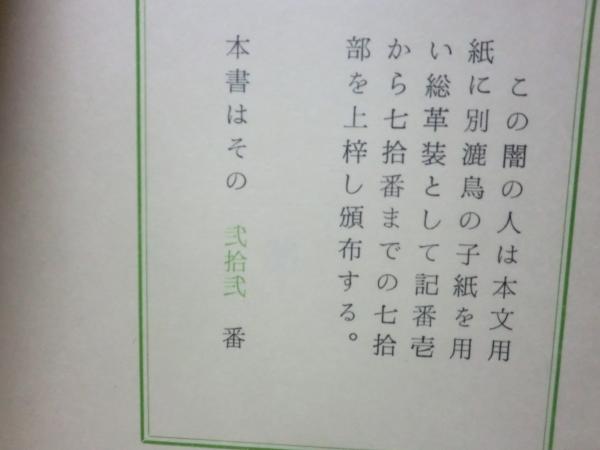 この闇の人は本文用
紙に別漉鳥の子紙を用
い総革装として記番壱
から七拾番までの七拾
部を上梓し頒布する。
本書はその 弐拾弐 番